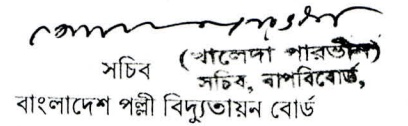 (খালেদা পারভীন)
সচিব
সচিব, বাপবিবোর্ড,
বাংলাদেশ পল্লী বিদ্যুতায়ন বোর্ড